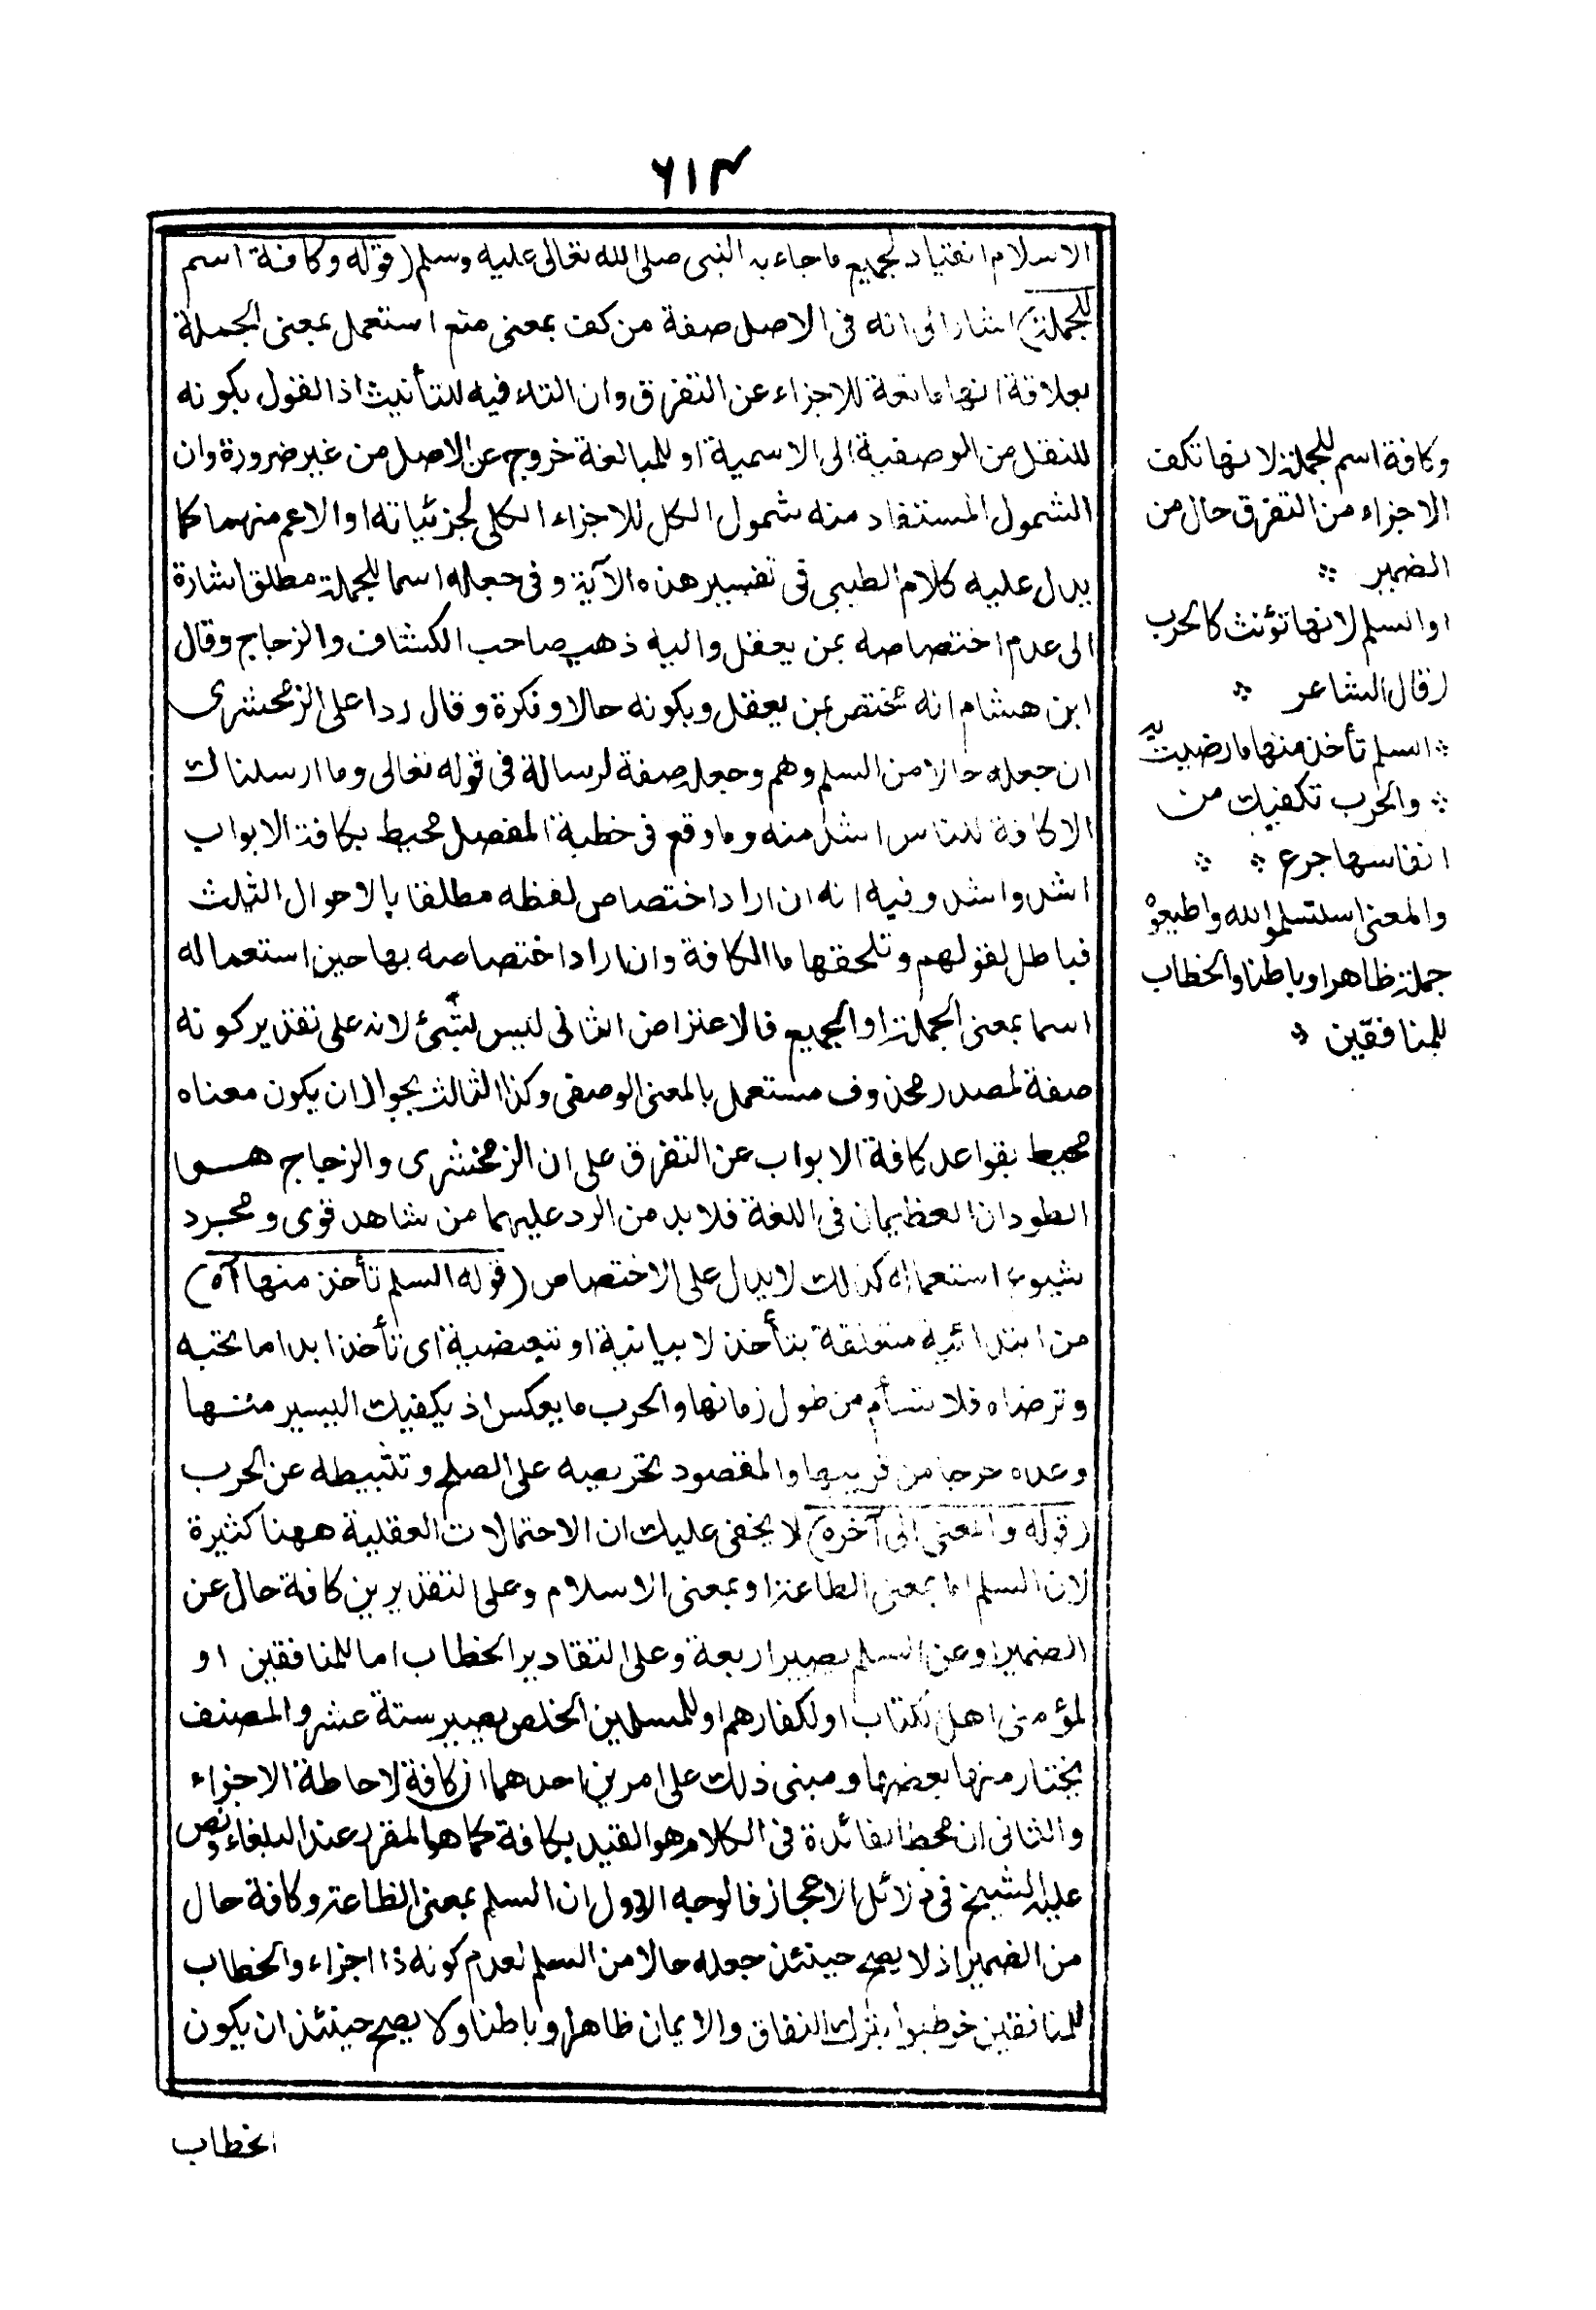 ٦١٣
الاسلام انقياد لجميع ما جاء به النبى صلى الله تعالى عليه وسلم (قوله وكافة اسم
للجملة) اشار الى انه فى الاصل صفة من كف بمعنى منع استعمل بمعنى الجملة
بعلاقة انها مانعة للاجزاء عن التفرق وان التاء فيه للتأنيث اذ القول بكونه
للنقل من الوصفية الى الاسمية او للمبالغة خروج عن الاصل من غير ضرورة وان
الشمول المستفاد منه شمول الكل للاجزاء الكلى لجزئياته او الاعم منهما كما
يدل عليه كلام الطيبى فى تفسير هذه الآية وفى جعله اسما للجملة مطلق اشارة
الى عدم اختصاصه بمن يعقل واليه ذهب صاحب الكشاف والزجاج وقال
ابن هشام انه مختص بمن يعقل وبكونه حالا ونكرة وقال ردا على الزمخشرى
ان جعله حالا من السلم وهم وجعله صفة لرسالة فى قوله تعالى وما ارسلناك
الا كافة للناس اشد منه وما وقع فى خطبة المفصل محيط بكافة الابواب
اشد واشد وفيه انه ان اراد اختصاص لفظه مطلقا بالاحوال الثلث
فباطل لقولهم وتلحقها ما الكافة وان اراد اختصاصه بها حين استعماله
اسما بمعنى الجملة او الجميع فالاعتراض الثانى ليس بشئ لانه على تقدير كونه
صفة لمصدر محذوف مستعمل بالمعنى الوصفى وكذا الثالث بجواز ان يكون معناه
محيط بقواعد كافة الابواب عن التفرق على ان الزمخشرى والزجاج هما
الطودان العظيمان فى اللغة فلا بد من الرد عليهما من شاهد قوى ومجرد
شيوع استعماله كذلك لا يدل على الاختصاص (قوله السلم تأخذ منها آه)
من ابتدائية متعلقة بتأخذ لا بيانية او تبعيضية اى تأخذ ابدا ما تحبه
وترضاه فلا تسأم من طول زمانها والحرب ما يعكس اذ يكفيك اليسير منها
وعده جرعا من قريبها والمقصود تحريصه على الصلح وتثبيطه عن الحرب
(قوله والمعنى الى آخره) لا يخفى عليك ان الاحتمالات العقلية ههنا كثيرة
لان السلم اما بمعنى الطاعة او بمعنى الاسلام وعلى التقديرين كافة حال عن
الضمير او عن السلم يصير اربعة وعلى التقادير الخطاب اما للمنافقين او
لمؤمنى اهل الكتاب او لكفارهم او للمسلمين الخلص يصير ستة عشر والمصنف
يختار منها بعضها ومبنى ذلك على امرين احدهما ان كافة لاحاطة الاجزاء
والثانى ان محط الفائدة فى الكلام هو القيد بكافة كما هو المقرر عند البلغاء ونص
عليه الشيخ فى دلائل الاعجاز فالوجه الاول ان السلم بمعنى الطاعة وكافة حال
من الضمير اذ لا يصح حينئذ جعله حالا من السلم لعدم كونه ذا اجزاء والخطاب
للمنافقين خوطبوا بترك النفاق والايمان ظاهرا وباطنا ولا يصح حينئذ ان يكون
الخطاب
وكافة اسم للجملة لانها تكف
الاجزاء من التفرق حال من
الضمير
او السلم لانها تؤنث كالحرب
قال الشاعر
السلم تأخذ منها ما رضيت به
والحرب تكفيك من
انفاسها جرع
والمعنى استسلموا لله واطيعوه
جملة ظاهرا وباطنا والخطاب
للمنافقين